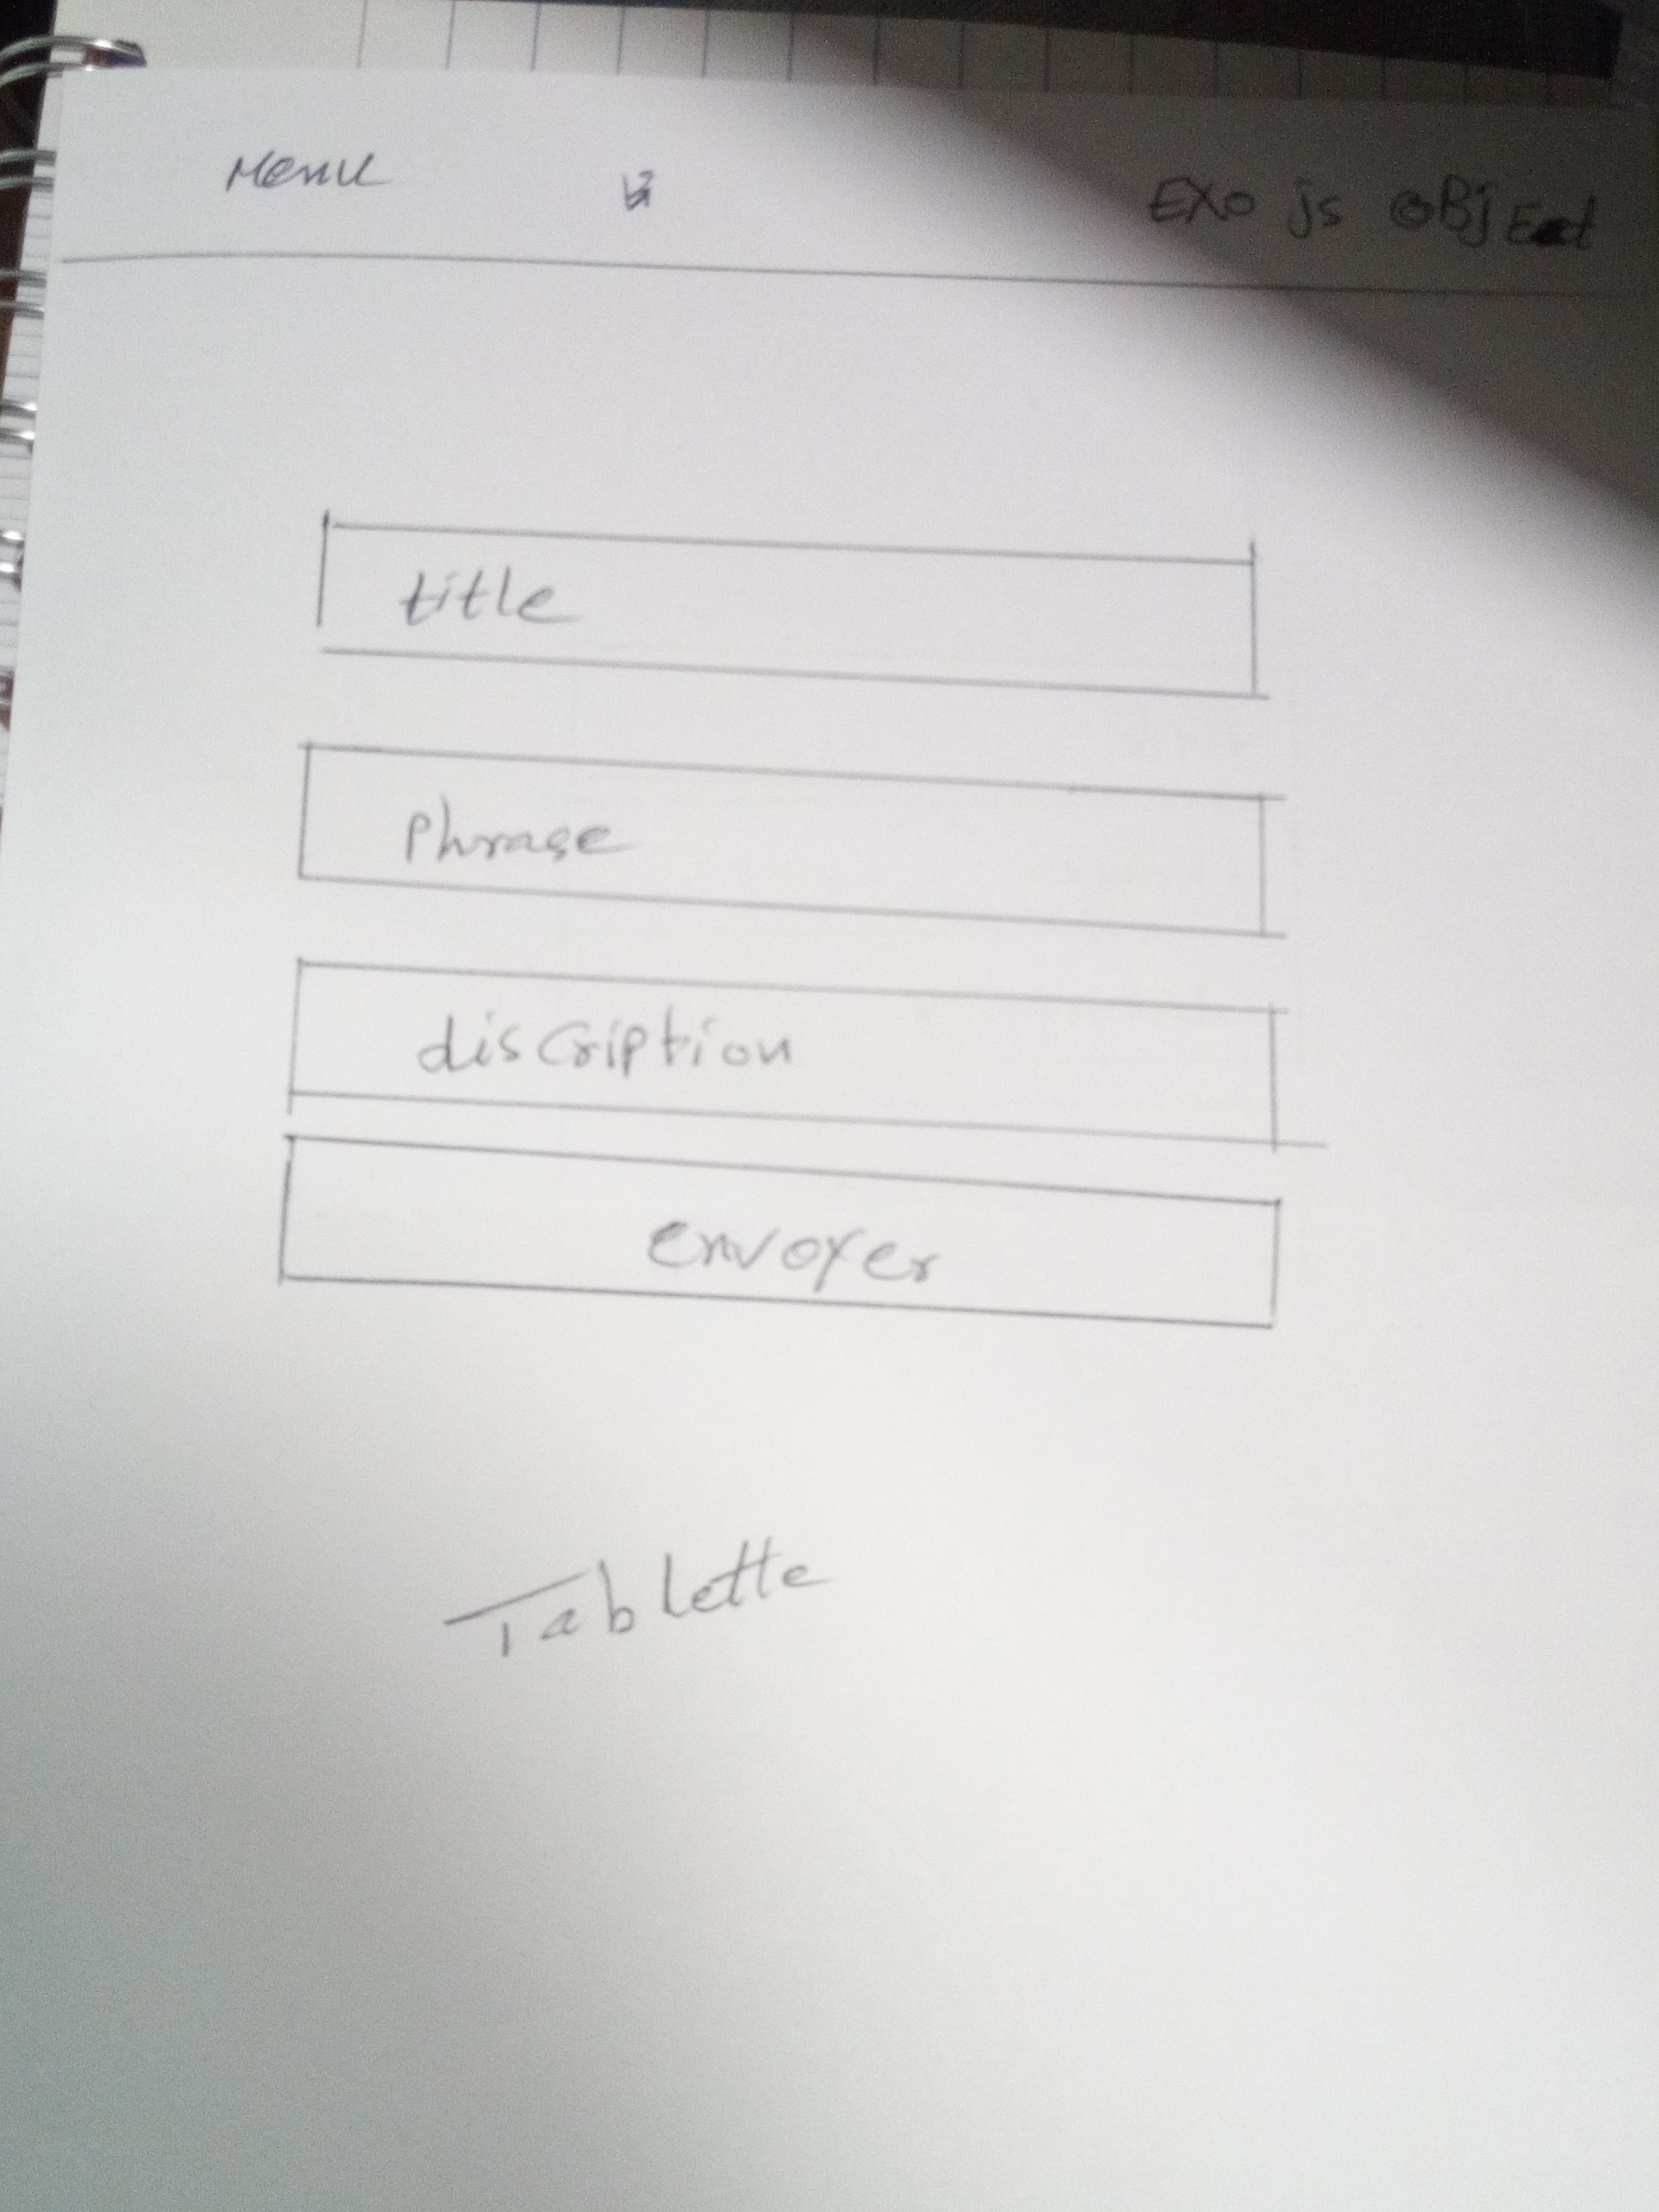 Menu EXO js OBjEct
title
Phrase
discription
envoyer
Tablette